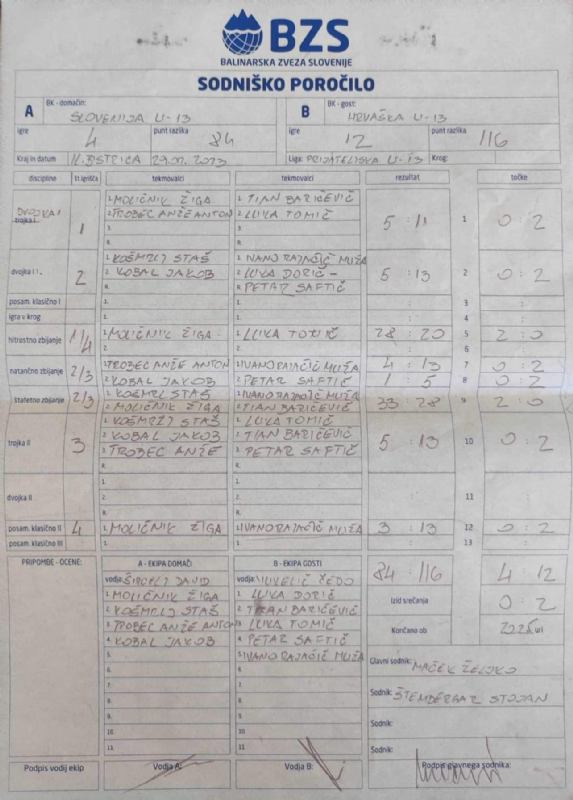 BZS
BALINARSKA ZVEZA SLOVENIJE
SODNIŠKO POROČILO
A BK - domačin: SLOVENIJA U-13 B BK - gost: HRVAŠKA U-13
igre 4 punt razlika 84 igre 12 punt razlika 116
Kraj in datum 29.07.2023 Liga: PRIJATELJSKA U-13 Krog:
discipline št.igrišča tekmovalci tekmovalci rezultat točke
DVOJKA I
trojka I. 1 1. MOLIČNIK ŽIGA 1. TIAN BARIČEVIČ 5 : 11 1 0 : 2
2. TROBEC ANŽE ANTON 2. LUKA TOMIČ
3. 3.
R. R.
dvojka I I. 2 1. KOŠMRLJ STAŠ 1. IVANO RAJAČIČ MUŽA 5 : 13 2 0 : 2
2. KOBAL JAKOB 2. LUKA DORIČ -
R. R. PETAR SAFTIČ
posam. klasično I 3
igra v krog 4
hitrostno zbijanje 1/4 1. MOLIČNIK ŽIGA 1. LUKA TOMIČ 28 : 20 5 2 : 0
2. 2. 6
natančno zbijanje 2/3 1. TROBEC ANŽE ANTON 1. IVANO RAJAČIČ MUŽA 4 : 13 7 0 : 2
2. KOBAL JAKOB 2. PETAR SAFTIČ 1 : 5 8 0 : 2
štafetno zbijanje 2/3 1. KOŠMRLJ STAŠ 1. IVANO RAJAČIČ MUŽA 33 : 28 9 2 : 0
2. MOLIČNIK ŽIGA 2. TIAN BARIČEVIČ
trojka II 3 1. KOŠMRLJ STAŠ 1. LUKA TOMIČ 5 : 13 10 0 : 2
2. KOBAL JAKOB 2. TIAN BARIČEVIČ
3. TROBEC ANŽE 3. PETAR SAFTIČ
R. R.
dvojka II 1. 1. 11
2. 2.
R. R.
posam. klasično II 4 1. MOLIČNIK ŽIGA 1. IVANO RAJAČIČ MUŽA 3 : 13 12 0 : 2
posam. klasično III 13
PRIPOMBE - OCENE: A - EKIPA DOMAČI B - EKIPA GOSTI 84 : 116 4 : 12
vodja: DAVID vodja: ČEDO
1. MOLIČNIK ŽIGA 1. LUKA DORIČ Izid srečanja 0 : 2
2. KOŠMRLJ STAŠ 2. TIAN BARIČEVIČ
3. TROBEC ANŽE ANTON 3. LUKA TOMIČ Končano ob uri
4. KOBAL JAKOB 4. PETAR SAFTIČ
5. 5. IVANO RAJAČIČ MUŽA Glavni sodnik: MAČEK ŽELJKO
6. 6.
7. 7. Sodnik: ŠTEMBERGAR STOJAN
8. 8.
9. 9. Sodnik:
10. 10.
11. 11. Sodnik:
Podpis vodij ekip Vodja A: Vodja B: Podpis glavnega sodnika: